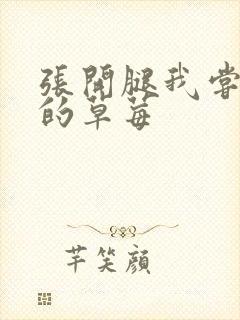 張開腿我嘗
的草莓
芊笑顏